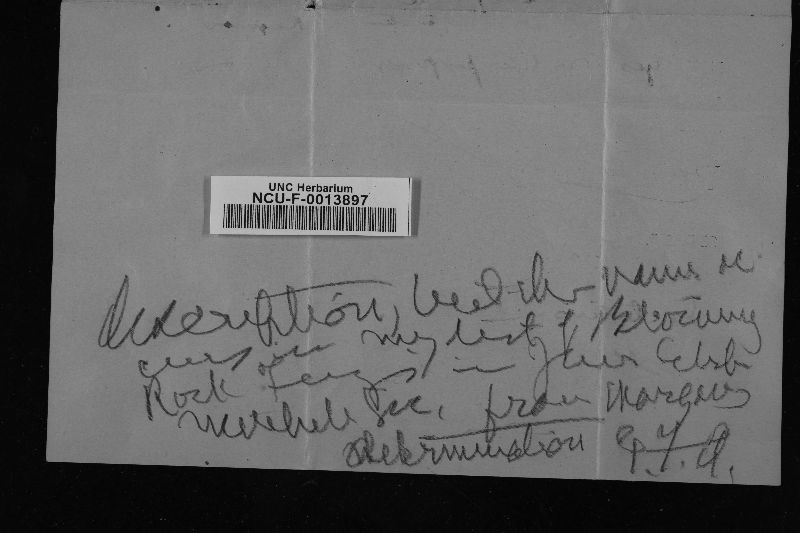 UNC Herbarium
NCU-F-0013897
description, but the name oc
curs in my list of Blowing
Rock Fungi in Jour Elisha
Mitchell Soc, from Morgan's
determination G.F.A.